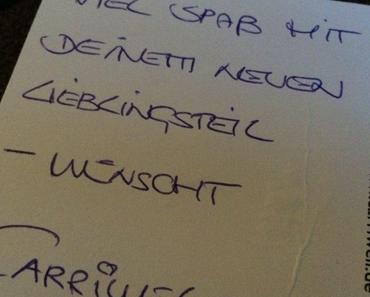 VIEL SPAß MIT
DEINEM NEUEN
LIEBLINGSTEIL
– WÜNSCHT